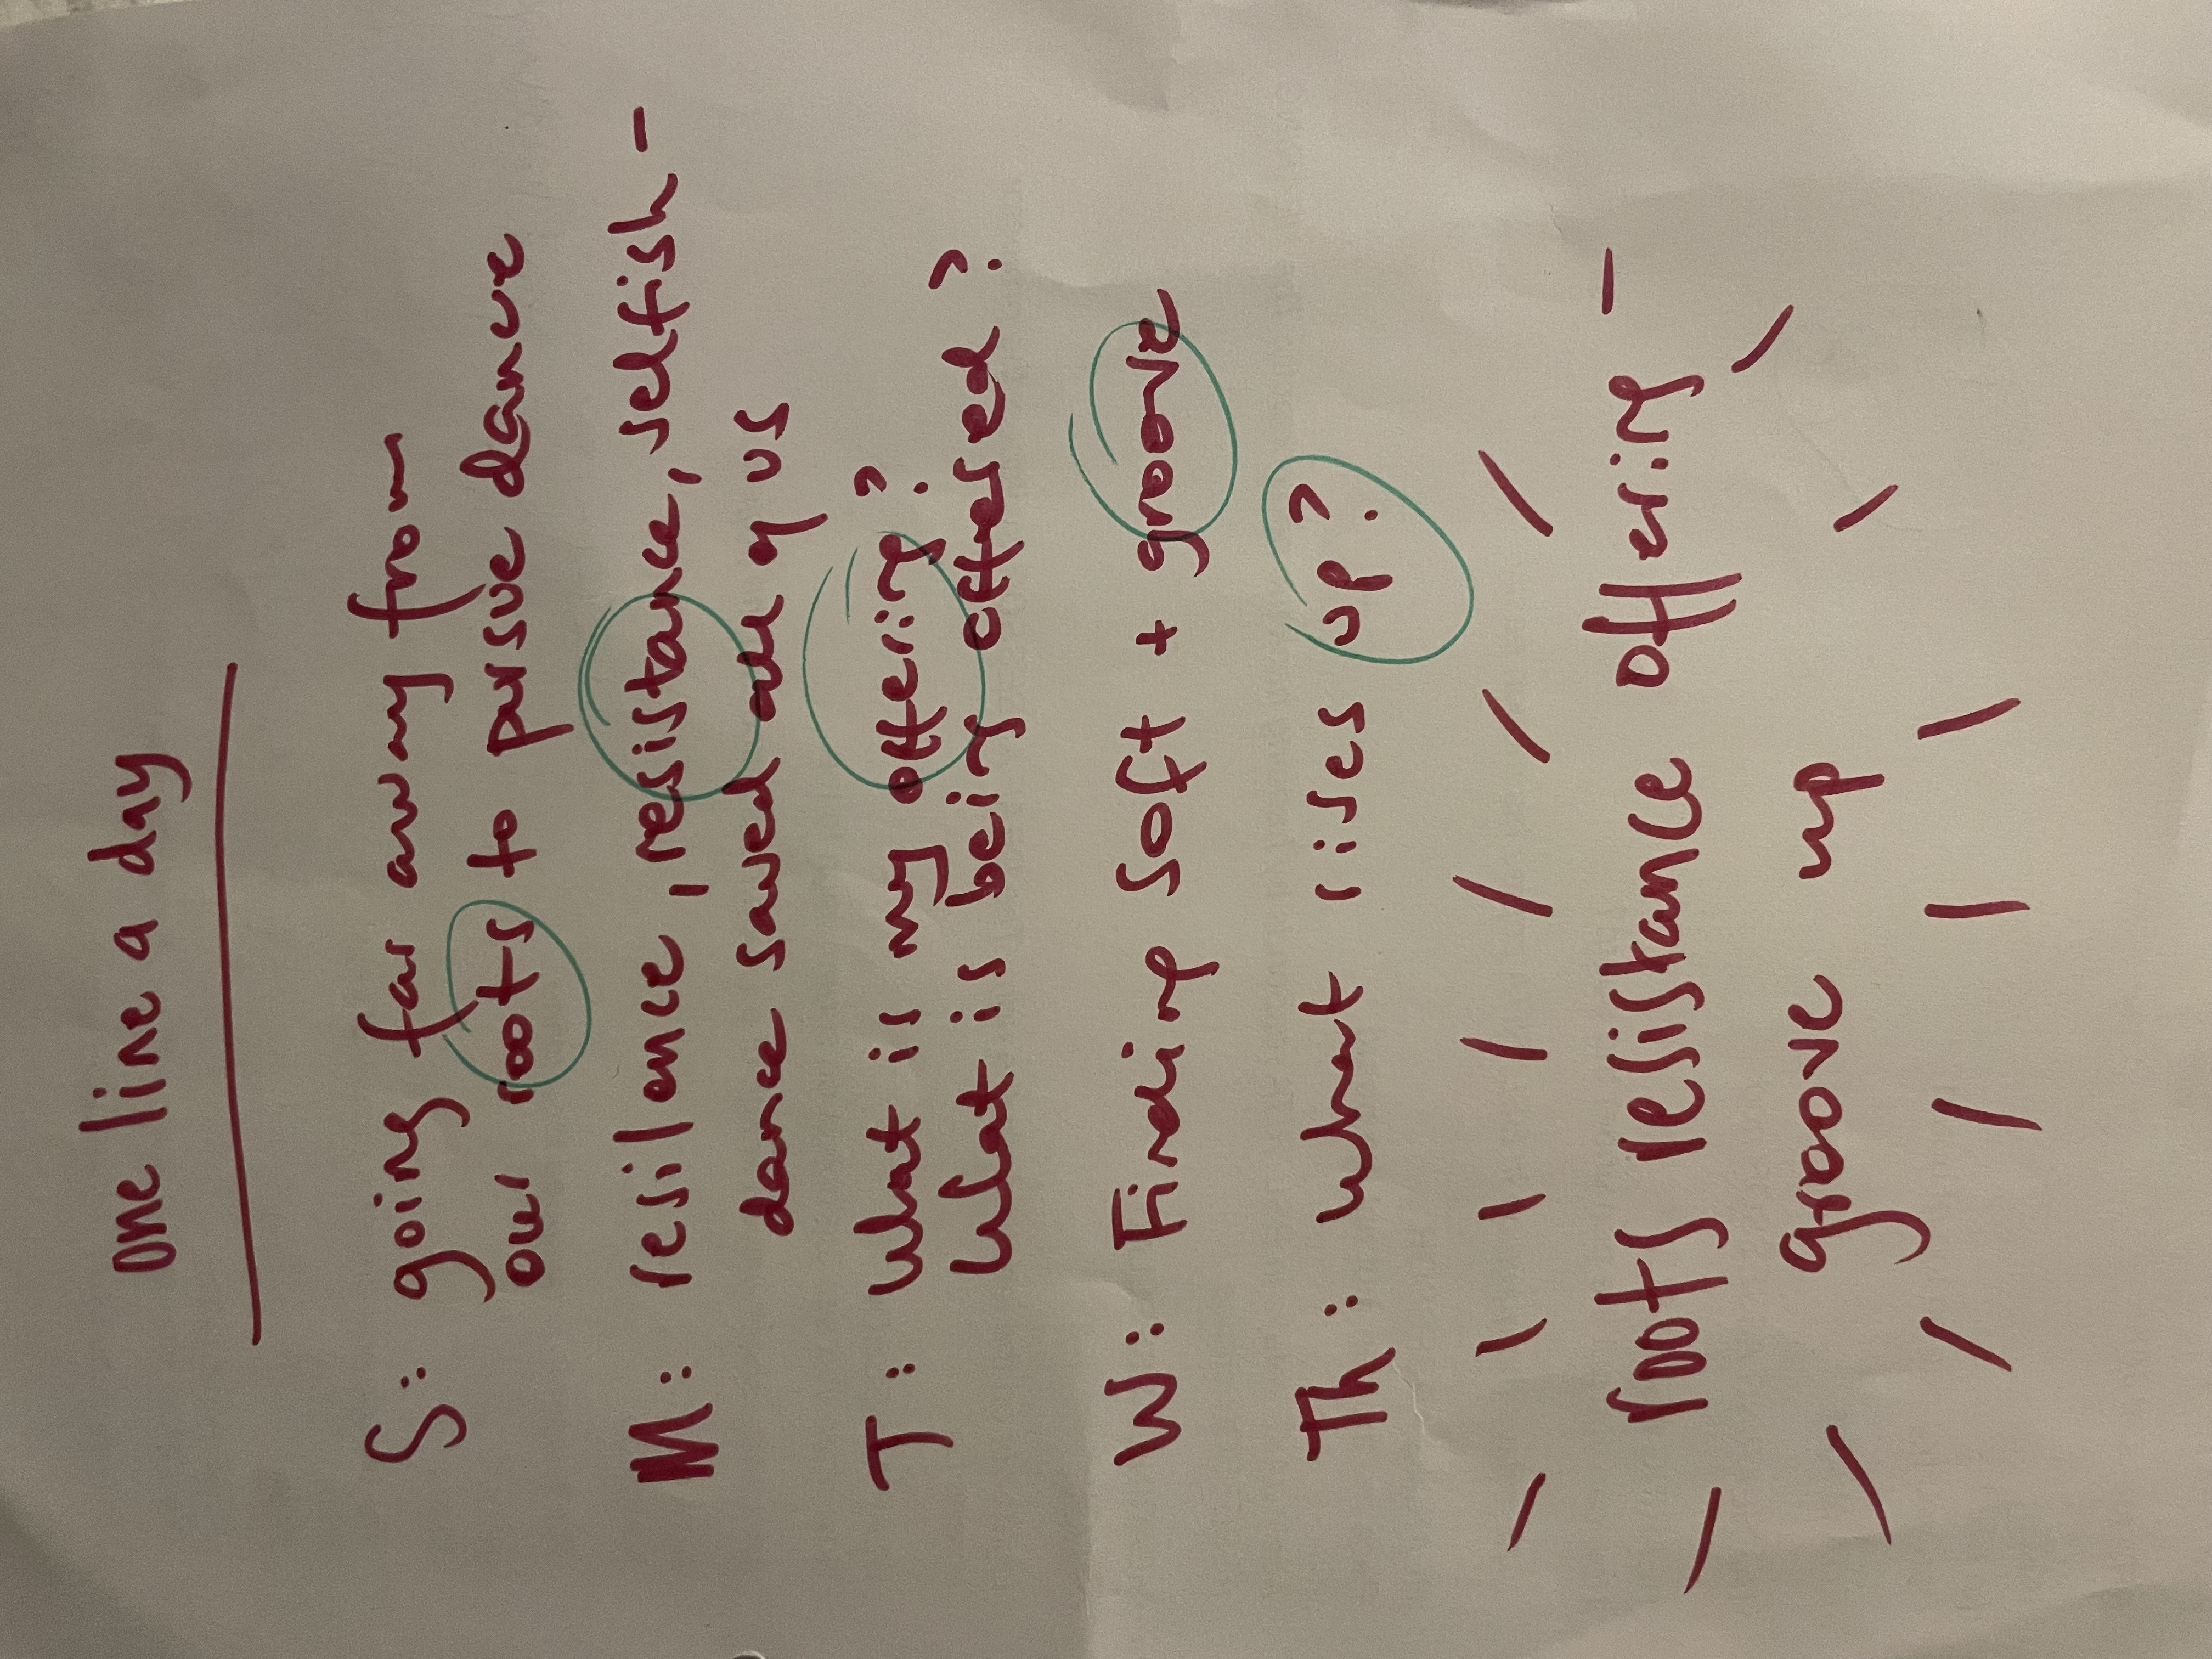 one line a day
S: going far away from
our roots to pursue dance
M: resilance, resistance, selfish -
dance saved all of us
T: what is my offering?
what is being offered?
W: Finding soft + groove
Th: what rises up?
roots resistance offering
groove up